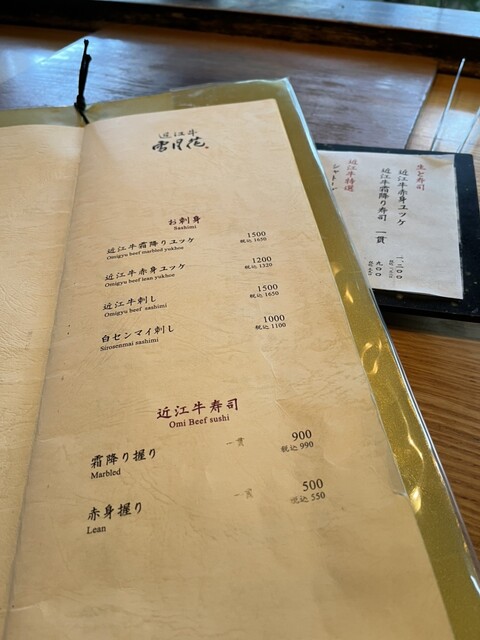 近江牛
雪月花
お刺身
Sashimi
近江牛霜降りユッケ 1500
Omigyu beef marbled yukhoe 税込 1650
近江牛赤身ユッケ 1200
Omigyu beef lean yukhoe 税込 1320
近江牛刺し 1500
Omigyu beef sashimi 税込 1650
白センマイ刺し 1000
Sirosenmai sashimi 税込 1100
近江牛寿司
Omi Beef sushi
霜降り握り 一貫 900
Marbled 税込 990
赤身握り 一貫 500
Lean 税込 550
近江牛赤身ユッケ 一、二〇〇
近江牛霜降り寿司 一貫 九〇〇
近江牛特選